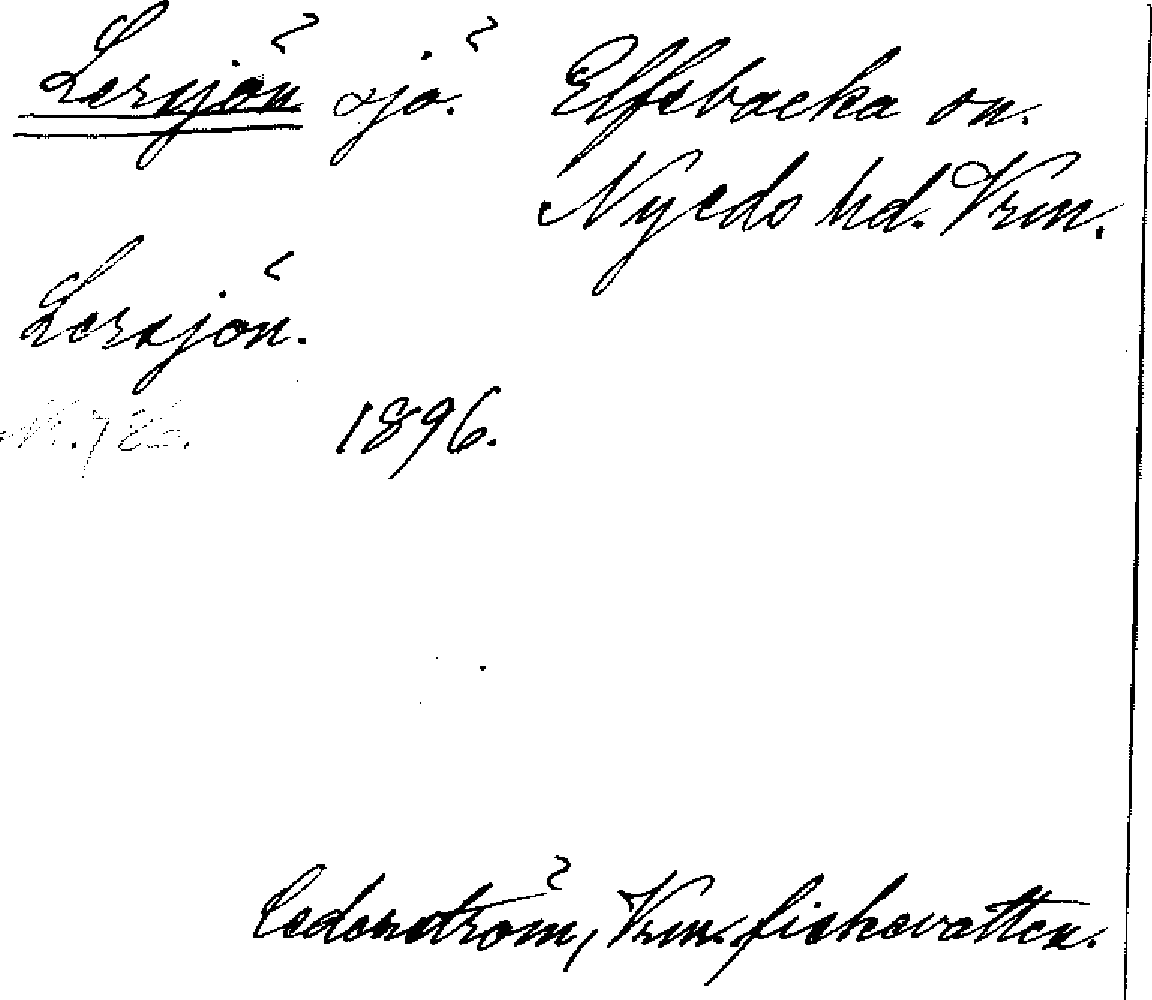 Lersjön sjö. Elfsbacka sn.
Nyeds hd. Vrm.
Lersjön.
1896.
Cederström, Vrm. fiskevatten.